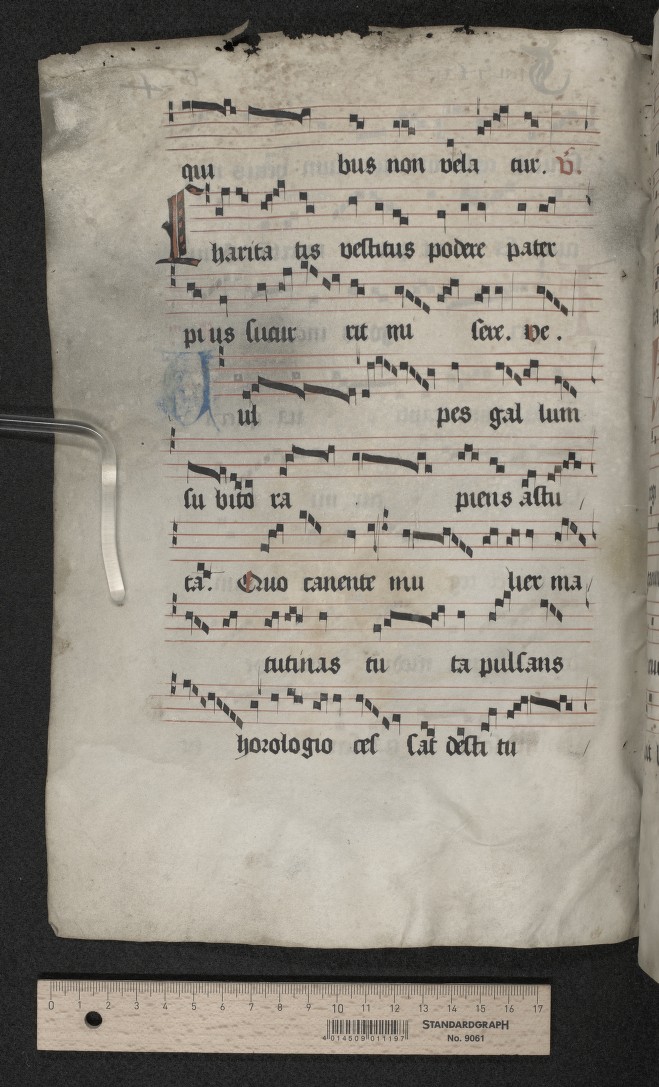 qui bus non vela tur. v̄.
Charita tis vestitus podere pater
pi us succur rit mi sere. ve.
Vul pes gal lum
su bito ra piens astu
ta. Quo canente mu lier ma
tutinas tu ta pulsans
horologio ces sat desti tu
0 1 2 3 4 5 6 7 8 9 10 11 12 13 14 15 16 17
4 014509 011197
STANDARDGRAPH
No. 9061